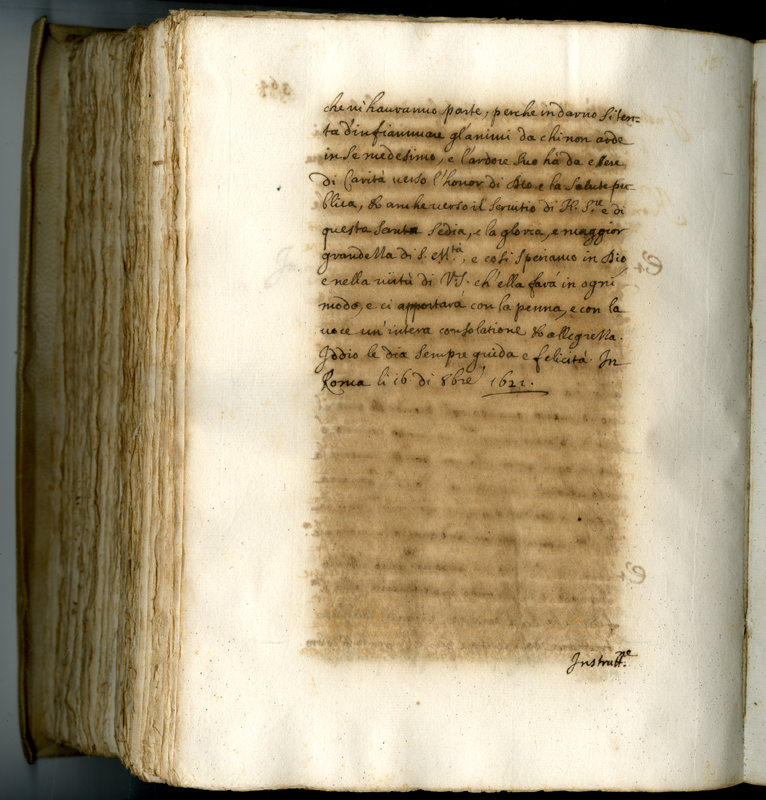 che vi hauranno parte, perche indarno si ten-
ta d'infiammare gl'animi da chi non arde
in se medesimo, e l'ardore suo hà da essere
di Carità verso l'honor di Dio, e la salute pu-
blica, & anche verso il seruitio di N. S.re e di
questa Santa Sedia, e la gloria, e maggior
grandezza di S. M.tà, e così speriamo in Dio
e nella uirtù di VS. ch'ella farà in ogni
modo, e ci apportarà con la penna, e con la
uoce un'intera consolatione & allegrezza.
Iddio le dia sempre guida e felicità. In
Roma li 16 di 8bre 1621.
Instrutt.ne